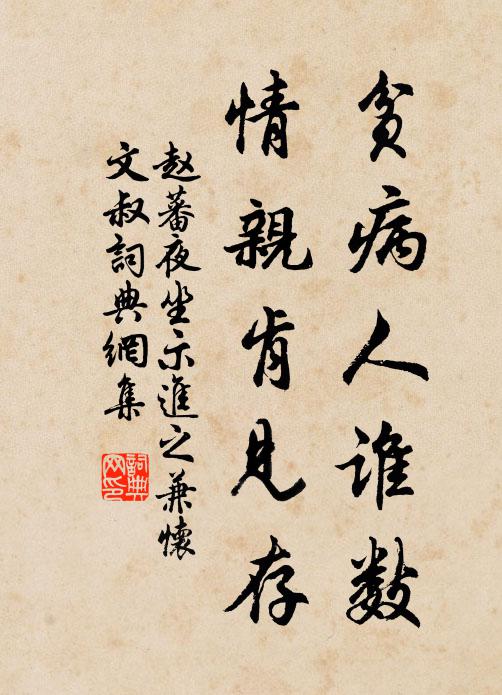 贫病人谁数
情親肯見存
赵蕃夜坐示進之兼懷
文叔詞典網集
詞典网印